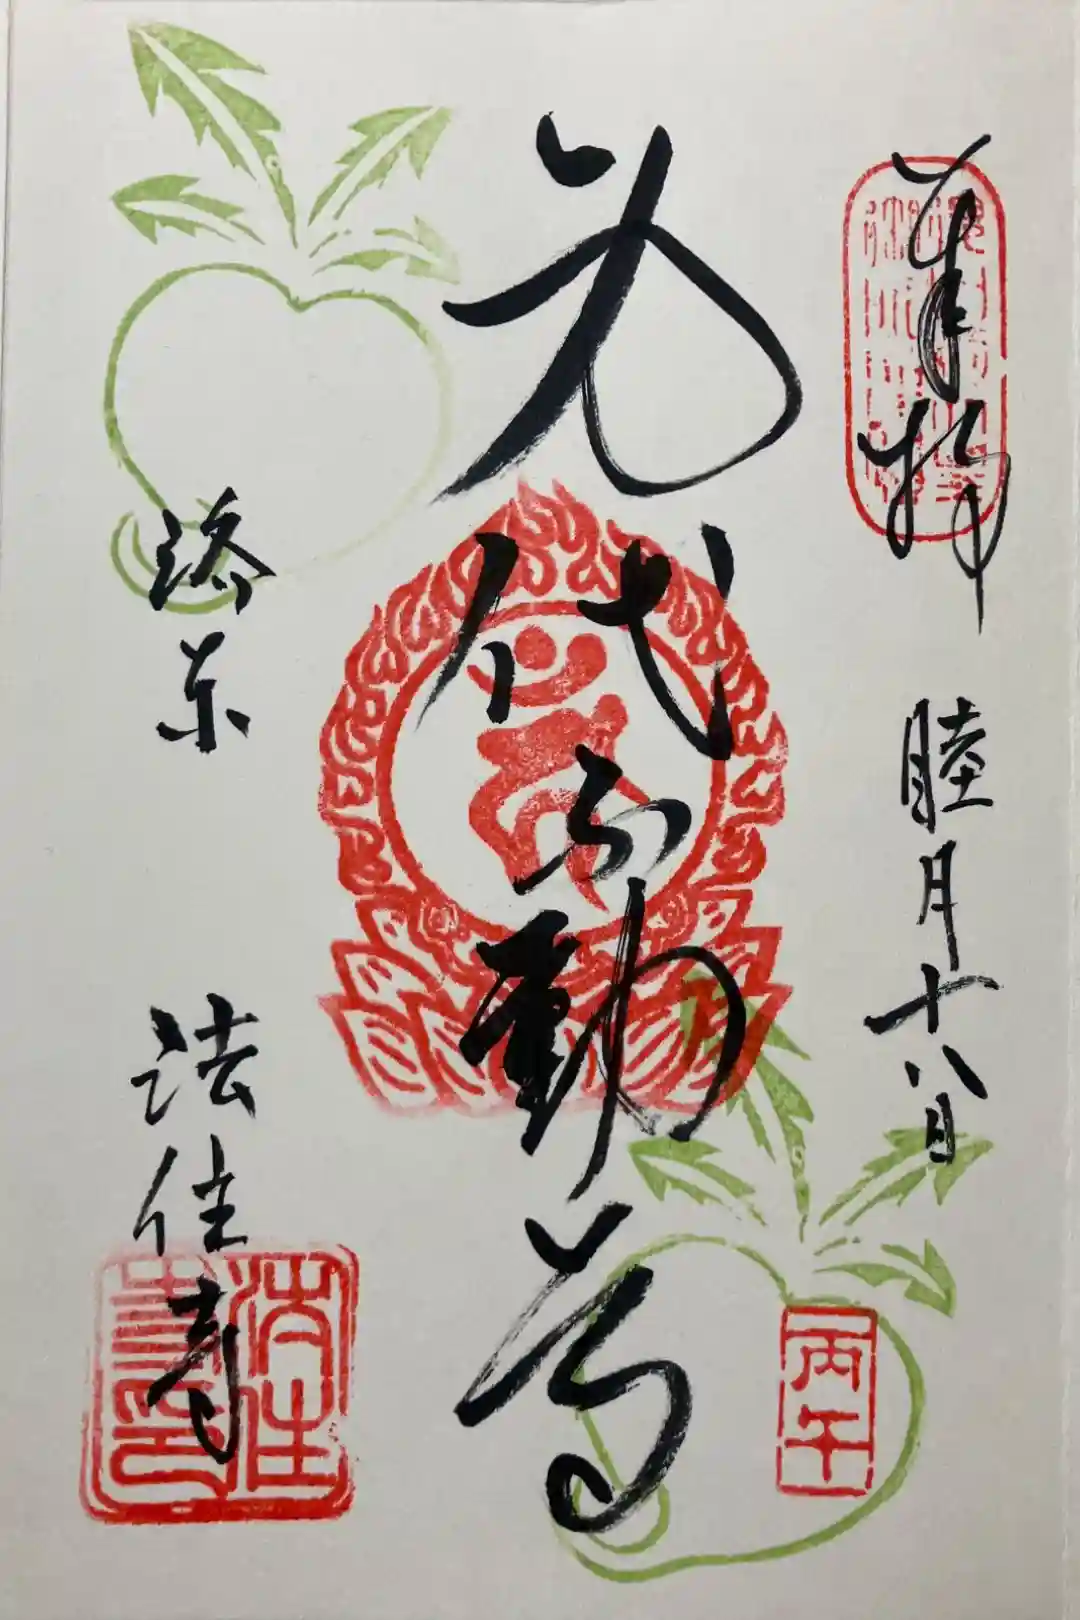 奉拝 睦月十八日
丙午
身代不動尊
洛東 法住寺
法住寺印